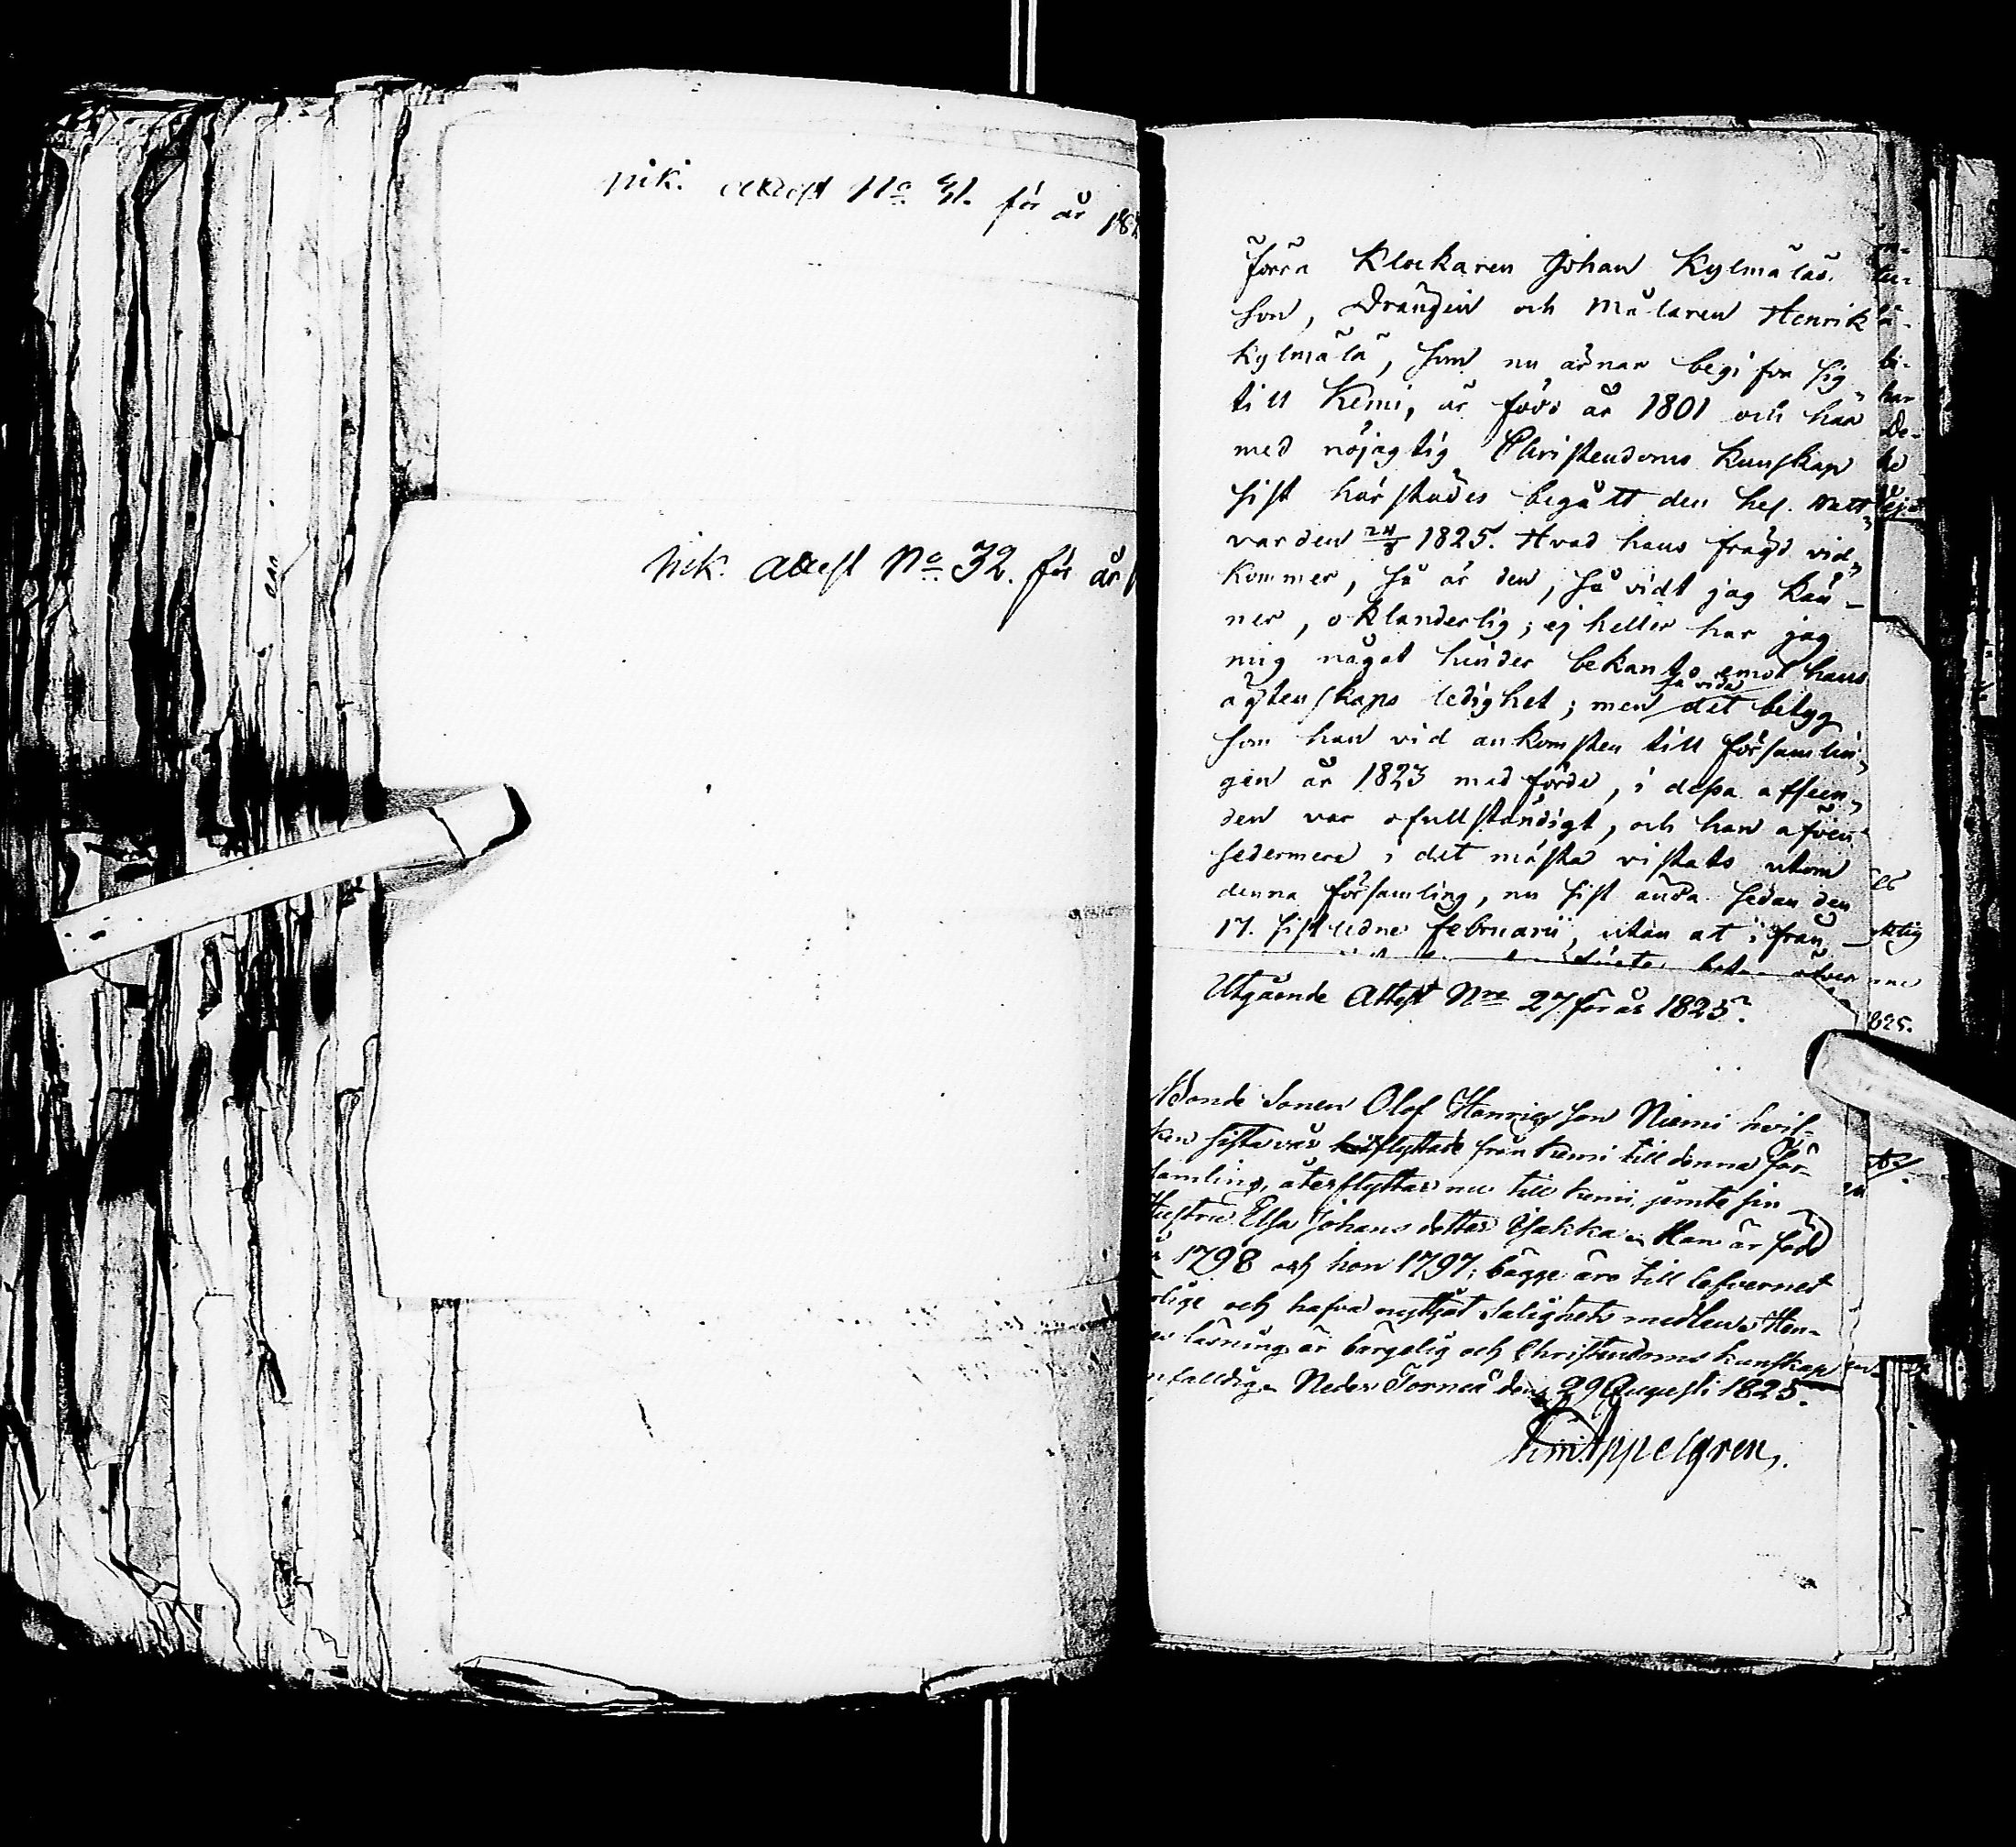 ink. attest No 31. för år 182
ink. attest No 32. för år 1
Förra Klockaren Johan Kylmäläs
Son, Drängen och Målaren Henrik
Kylmälä, som nu ärnar begifva sig
till Kemi, är född år 1801 och har
med nöjagtig Christendoms Kunskap
sist härstädes begått den hel. Natt„
varden 24/8 1825. Hvad hans frägd vid„
kommer, så är den, så vidt jag kän-
ner, oklanderlig; ej heller har jag
mig något hinder bekant emot hans
ägtenskaps ledighet; men så vida det betyg
som han vid ankomsten till församlin„
gen år 1823 medförde, i dessa afseen„
den var ofullständigt, och han äfven
sedermera i det mästa vistats utom
denna församling, nu sist ända sedan den
17. sistledne Februarii, utan at ifrån
Utgående Attest Nro 27 för år 1825.
Bonde Sonen Olof Henricsson Niemi hvil-
ken sista vår hitflyttade från Kemi till denna För-
samling, återflyttar nu till Kemi jemte sin
Hustru Elsa Johansdotter Isakka. Han är född
1798 och hon 1797; bägge äro till lefvernet
och hafva nyttjat Salighets medlen. Hen-
läsning är bärgelig och Christendoms kunskap
enfalldig. Neder Torneå den 29 Augusti 1825.
Appelgren.
825.